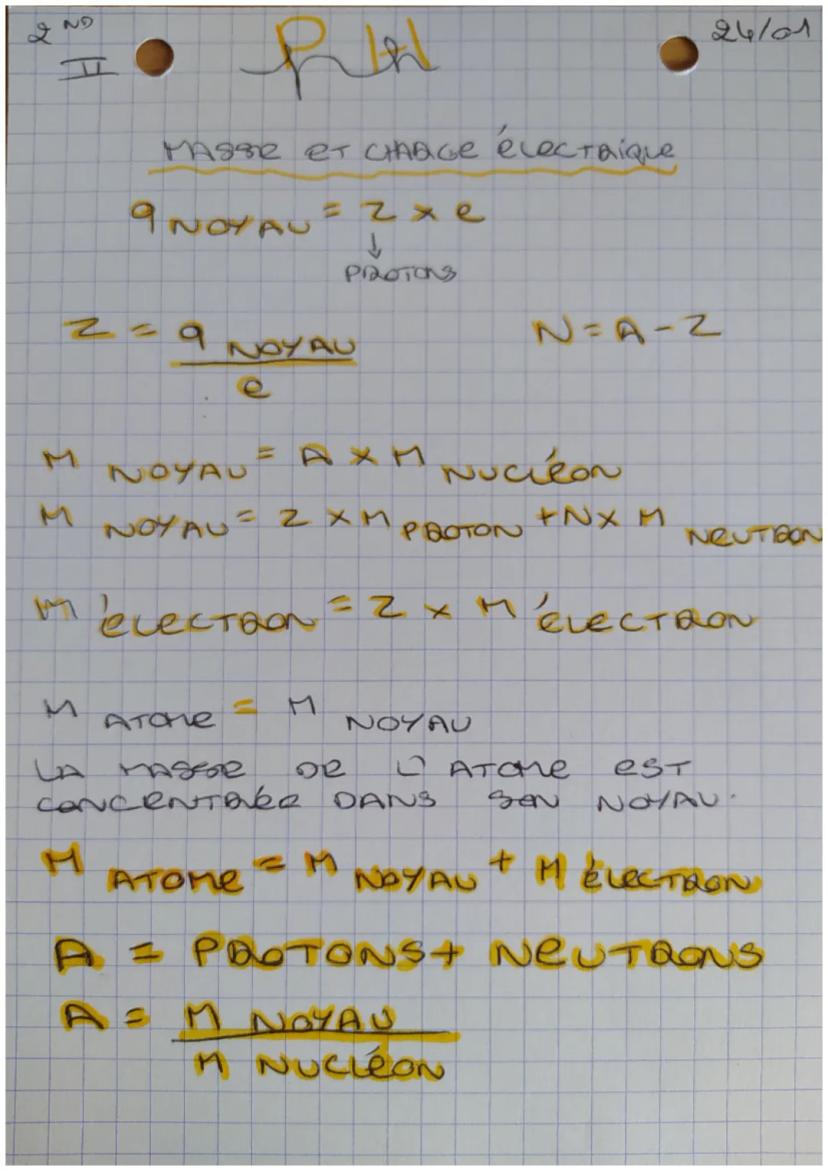 2ND
II
PH
24/01
MASSE ET CHARGE éLECTRiQUE
q NOYAU = Z x e
↓
PROTONS
Z = q NOYAU / e
N = A - Z
M NOYAU = A x M NUCLéON
M NOYAU = Z x M PROTON + N x M NEUTRON
M éLECTRON = Z x M éLECTRON
M ATOME = M NOYAU
LA MASSE DE L'ATOME EST
CONCENTRéE DANS SON NOYAU.
M ATOME = M NOYAU + M éLECTRON
A = PROTONS + NEUTRONS
A = M NOYAU / M NUCLéON